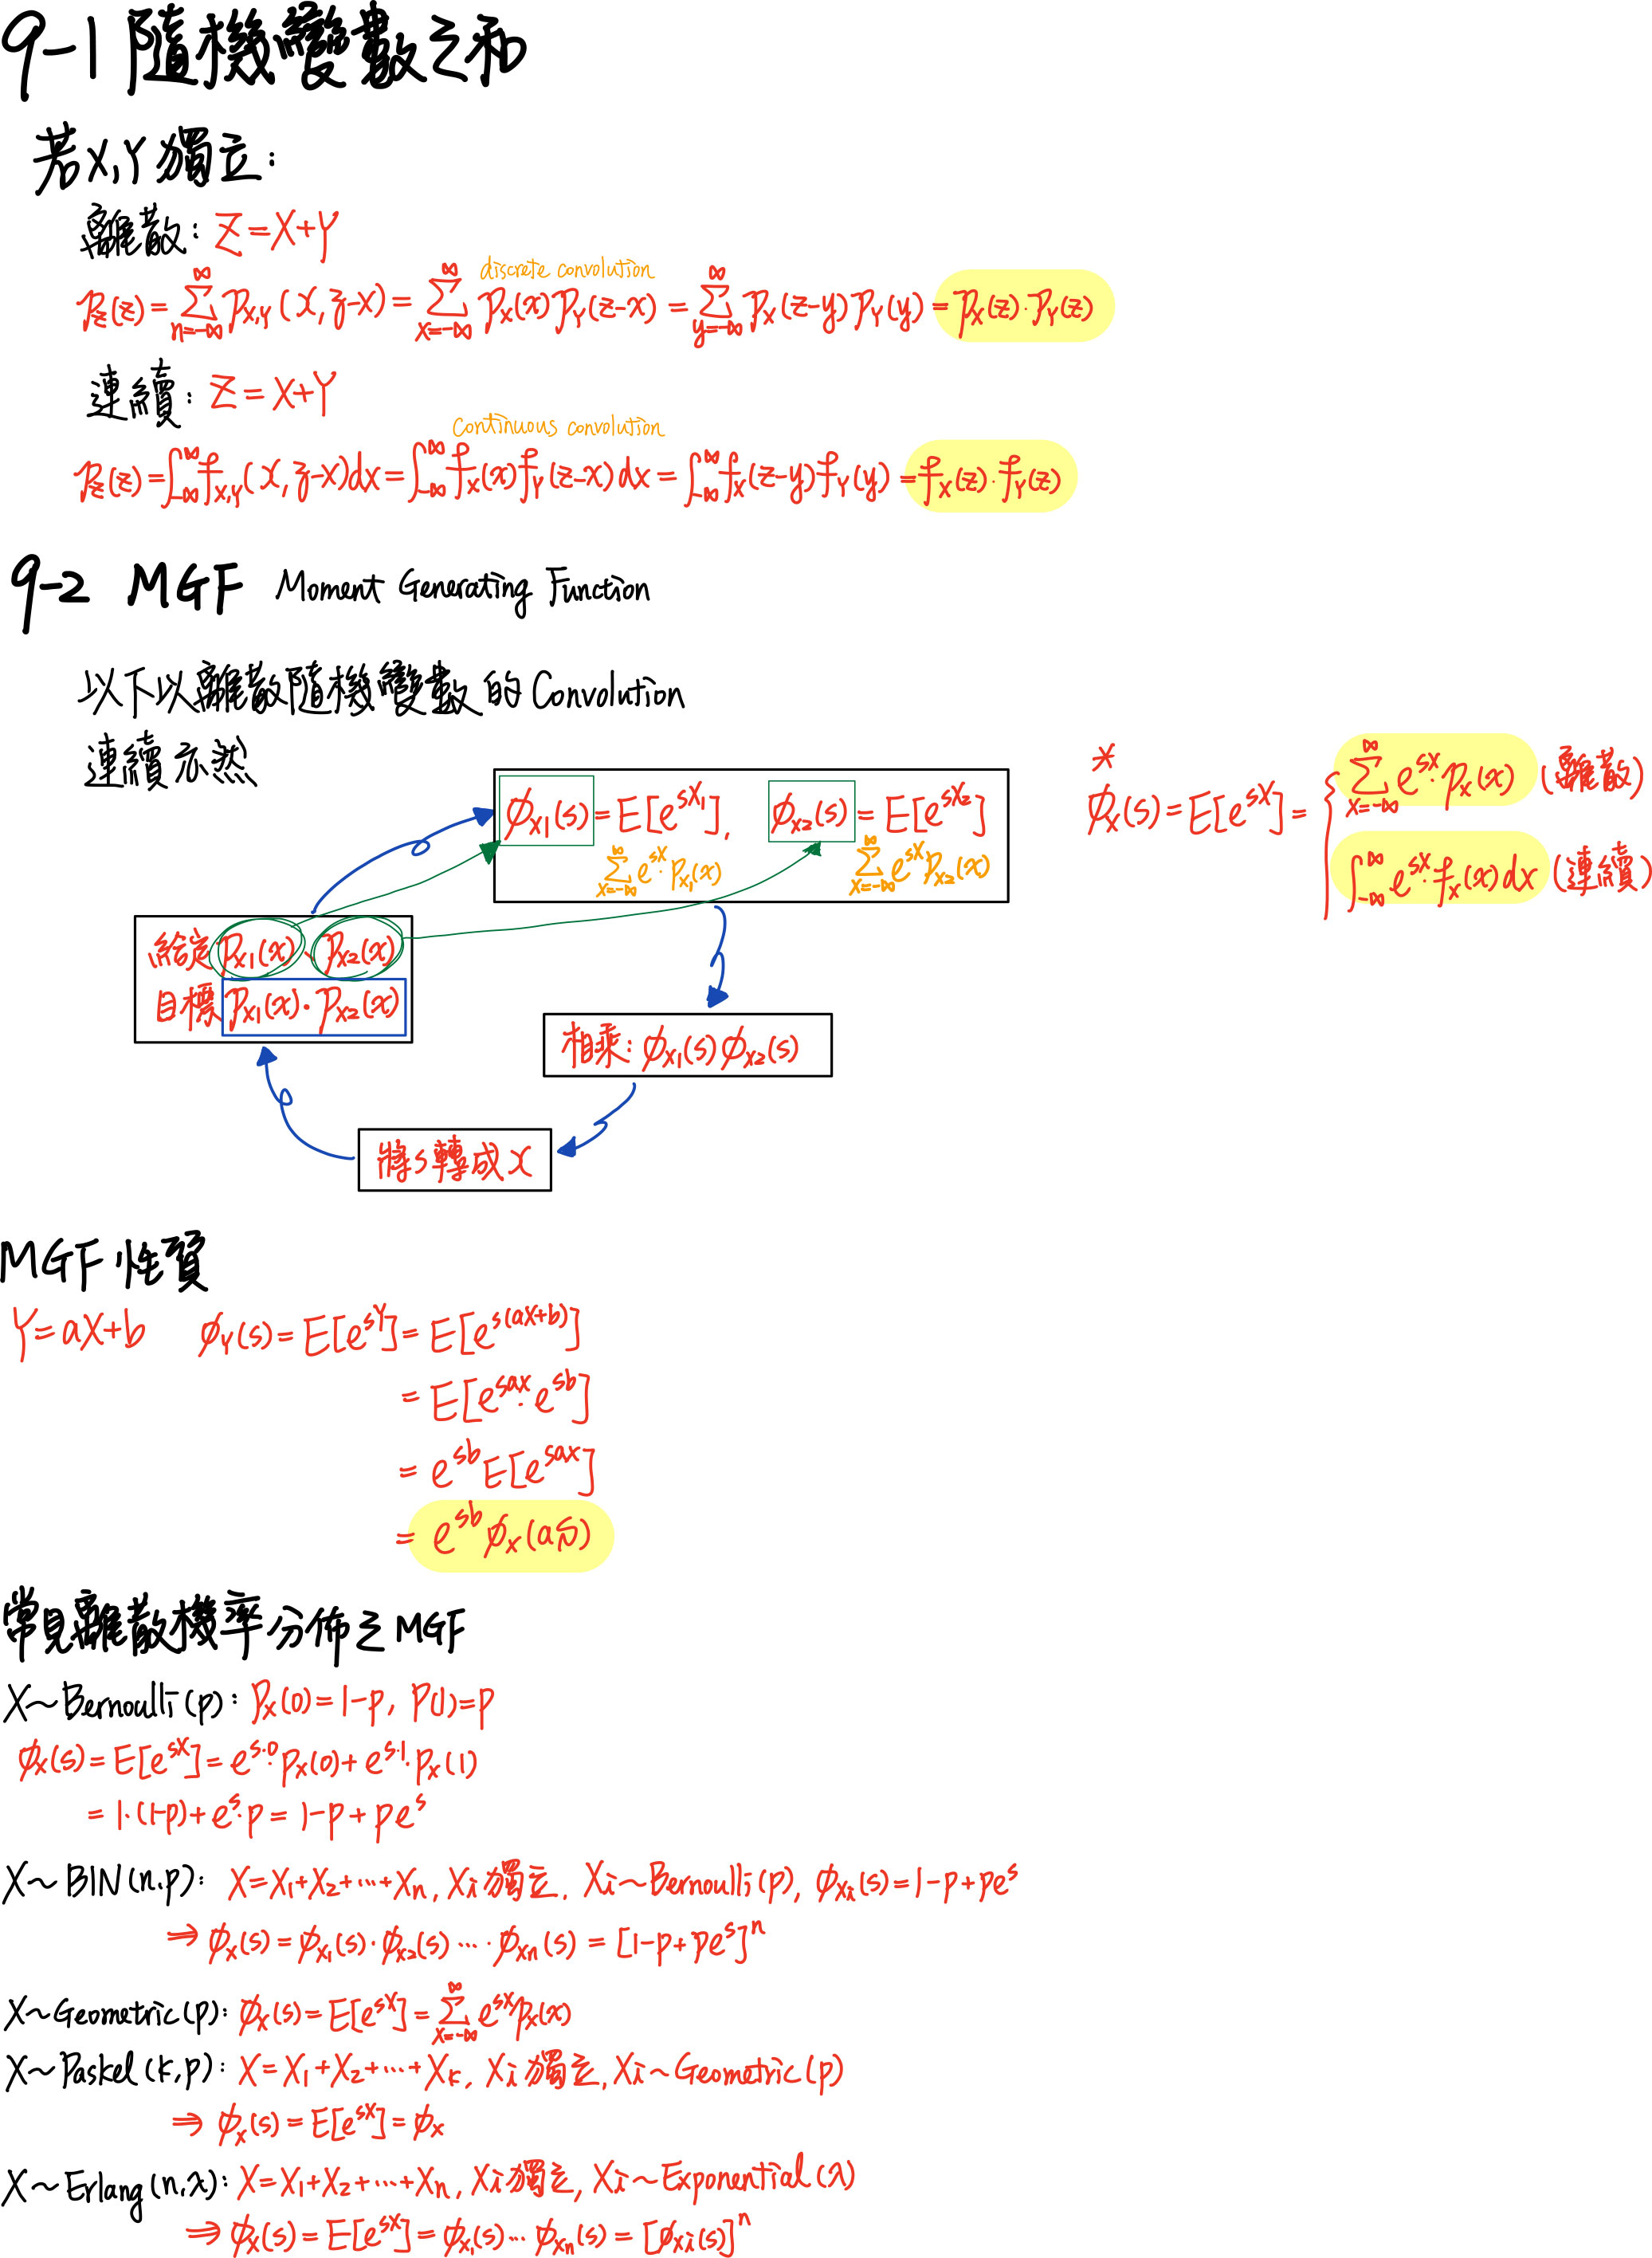 9-1 隨機變數之和
若X,Y獨立:
離散: Z=X+Y
discrete convolution
P_Z(z)=∑_{n=-∞}^{∞} P_{X,Y}(x,z-x)=∑_{x=-∞}^{∞} P_X(x)P_Y(z-x)=∑_{y=-∞}^{∞} P_X(z-y)P_Y(y)=P_X(z)·P_Y(z)
連續: Z=X+Y
continuous convolution
P_Z(z)=∫_{-∞}^{∞} f_{X,Y}(x,z-x)dx=∫_{-∞}^{∞} f_X(x)f_Y(z-x)dx=∫_{-∞}^{∞} f_X(z-y)f_Y(y)=f_X(z)·f_Y(z)
9-2 MGF Moment Generating Function
以下以離散隨機變數的Convolution
連續亦然
ϕ_{X1}(s)=E[e^{sX_1}], ϕ_{X2}(s)=E[e^{sX_2}]
∑_{x=-∞}^{∞} e^{sx}·P_{X1}(x) ∑_{x=-∞}^{∞} e^{sx}P_{X2}(x)
*
ϕ_X(s)=E[e^{sX}]={ ∑_{x=-∞}^{∞} e^{sx}·P_X(x) (離散)
∫_{-∞}^{∞} e^{sx}·f_X(x)dx (連續)
給定P_{X1}(x)、P_{X2}(x)
目標P_{X1}(x)·P_{X2}(x)
相乘: ϕ_{X1}(s)ϕ_{X2}(s)
將s轉成x
MGF性質
Y=aX+b ϕ_Y(s)=E[e^{sY}]=E[e^{s(aX+b)}]
=E[e^{sax}·e^{sb}]
=e^{sb}E[e^{sax}]
=e^{sb}ϕ_X(as)
常見離散機率分佈之MGF
X~Bernoulli(p): P_X(0)=1-p, P(1)=p
ϕ_X(s)=E[e^{sX}]=e^{s·0}·P_X(0)+e^{s·1}·P_X(1)
=1·(1-p)+e^s·p=1-p+pe^s
X~BIN(n.p): X=X_1+X_2+···+X_n, X_i獨立, X_i~Bernoulli(p), ϕ_{Xi}(s)=1-p+pe^s
⇒ϕ_X(s)=ϕ_{X1}(s)·ϕ_{X2}(s)···ϕ_{Xn}(s)=[1-p+pe^s]^n
X~Geometric(p): ϕ_X(s)=E[e^{sX}]=∑_{x=-∞}^{∞} e^{sx}P_X(x)
X~Paskel(k,p): X=X_1+X_2+···+X_k, X_i獨立, X_i~Geometric(p)
⇒ϕ_X(s)=E[e^{sX}]=ϕ_X
X~Erlang(n,λ): X=X_1+X_2+···+X_n, X_i獨立, X_i~Exponential(λ)
⇒ϕ_X(s)=E[e^{sX}]=ϕ_{X1}(s)···ϕ_{Xn}(s)=[ϕ_{Xi}(s)]^n